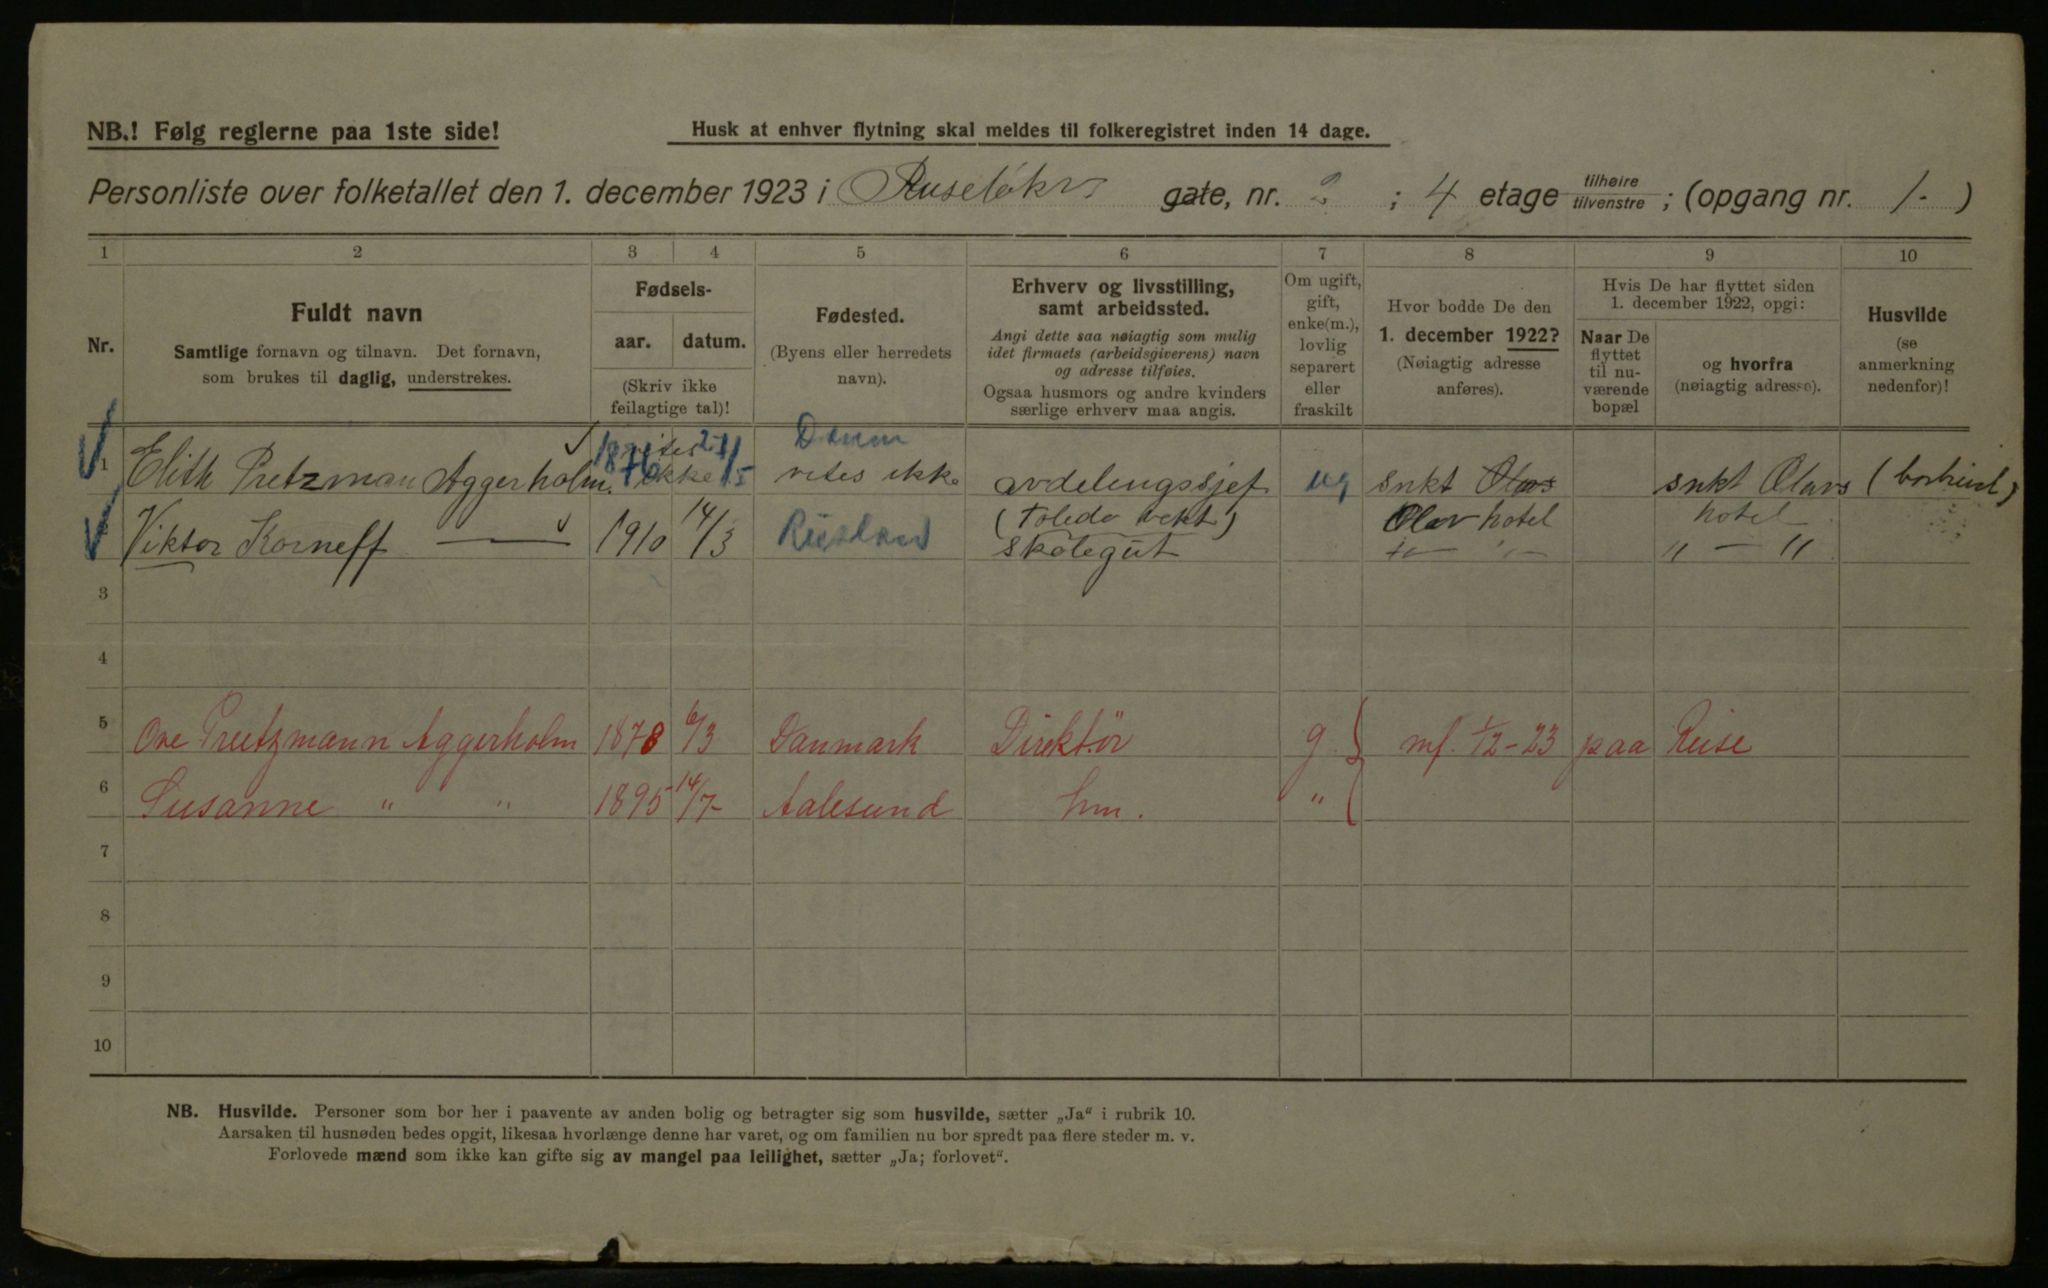 NB.! Følg reglerne paa 1ste side!
Husk at enhver flytning skal meldes til folkeregistret inden 14 dage.
Personliste over folketallet den 1. december 1923 i Ruseløkv gate, nr. 2 ; 4 etage tilhøire tilvenstre ; (opgang nr. 1 - )
1 2 3 4 5 6 7 8 9 10
Nr.
Fuldt navn
Samtlige fornavn og tilnavn. Det fornavn,
som brukes til daglig, understrekes.
Fødsels-
aar. datum.
(Skriv ikke
feilagtige tal)!
Fødested.
(Byens eller herredets
navn).
Erhverv og livsstilling,
samt arbeidssted.
Angi dette saa nøiagtig som mulig
idet firmaets (arbeidsgiverens) navn
og adresse tilføies.
Ogsaa husmors og andre kvinders
særlige erhverv maa angis.
Om ugift,
gift,
enke(m.),
lovlig
separert
eller
fraskilt
Hvor bodde De den
1. december 1922?
(Nøiagtig adresse
anføres).
Hvis De har flyttet siden
1. december 1922, opgi:
Naar De
flyttet
til nu-
værende
bopæl
og hvorfra
(nøiagtig adresse).
Husvilde
(se
anmerkning
nedenfor)!
1 Elith Pretzman Aggerholm. vites ikke 1876 vites ikke avdelengssjef ug snkt Olavs snkt Olavs
(Toledo vekt) Olav hotel hotel
Viktor Korneff — 1910 14/3 Rusland skolegut " — " " — "
3
4
5 Ove Preetzmann Aggerholm 1878 6/3 Danmark Direktör g mf. 1/2-23 paa Reise
6 Susanne " " 1895 14/7 Aalesund hm. "
7
8
9
10
NB. Husvilde. Personer som bor her i paavente av anden bolig og betragter sig som husvilde, sætter „Ja“ i rubrik 10.
Aarsaken til husnøden bedes opgit, likesaa hvorlænge denne har varet, og om familien nu bor spredt paa flere steder m. v.
Forlovede mænd som ikke kan gifte sig av mangel paa leilighet, sætter „Ja; forlovet“.